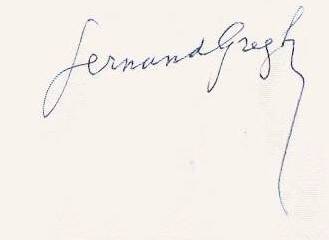 Fernand Gregh